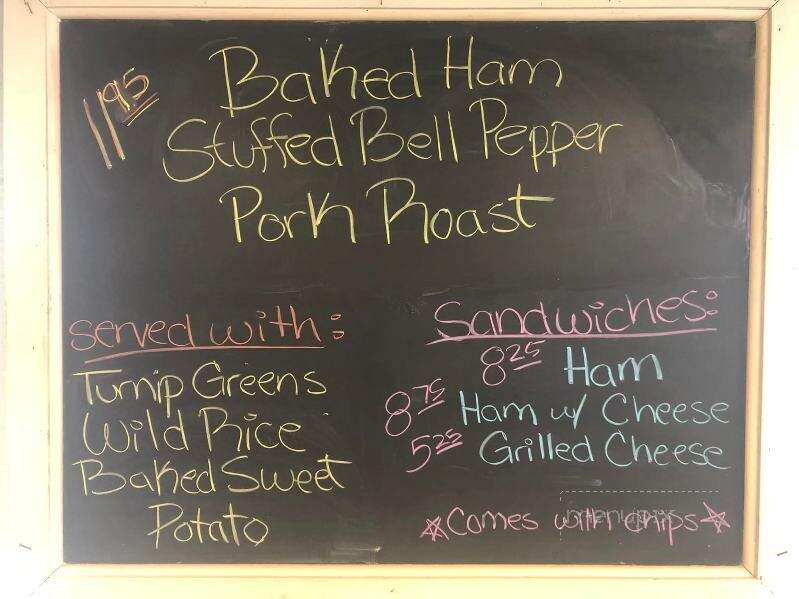 11.95
Baked Ham
Stuffed Bell Pepper
Pork Roast
Served with:
Turnip Greens
Wild Rice
Baked Sweet
Potato
Sandwiches:
8.25 Ham
8.75 Ham w/ Cheese
5.25 Grilled Cheese
*Comes with chips*